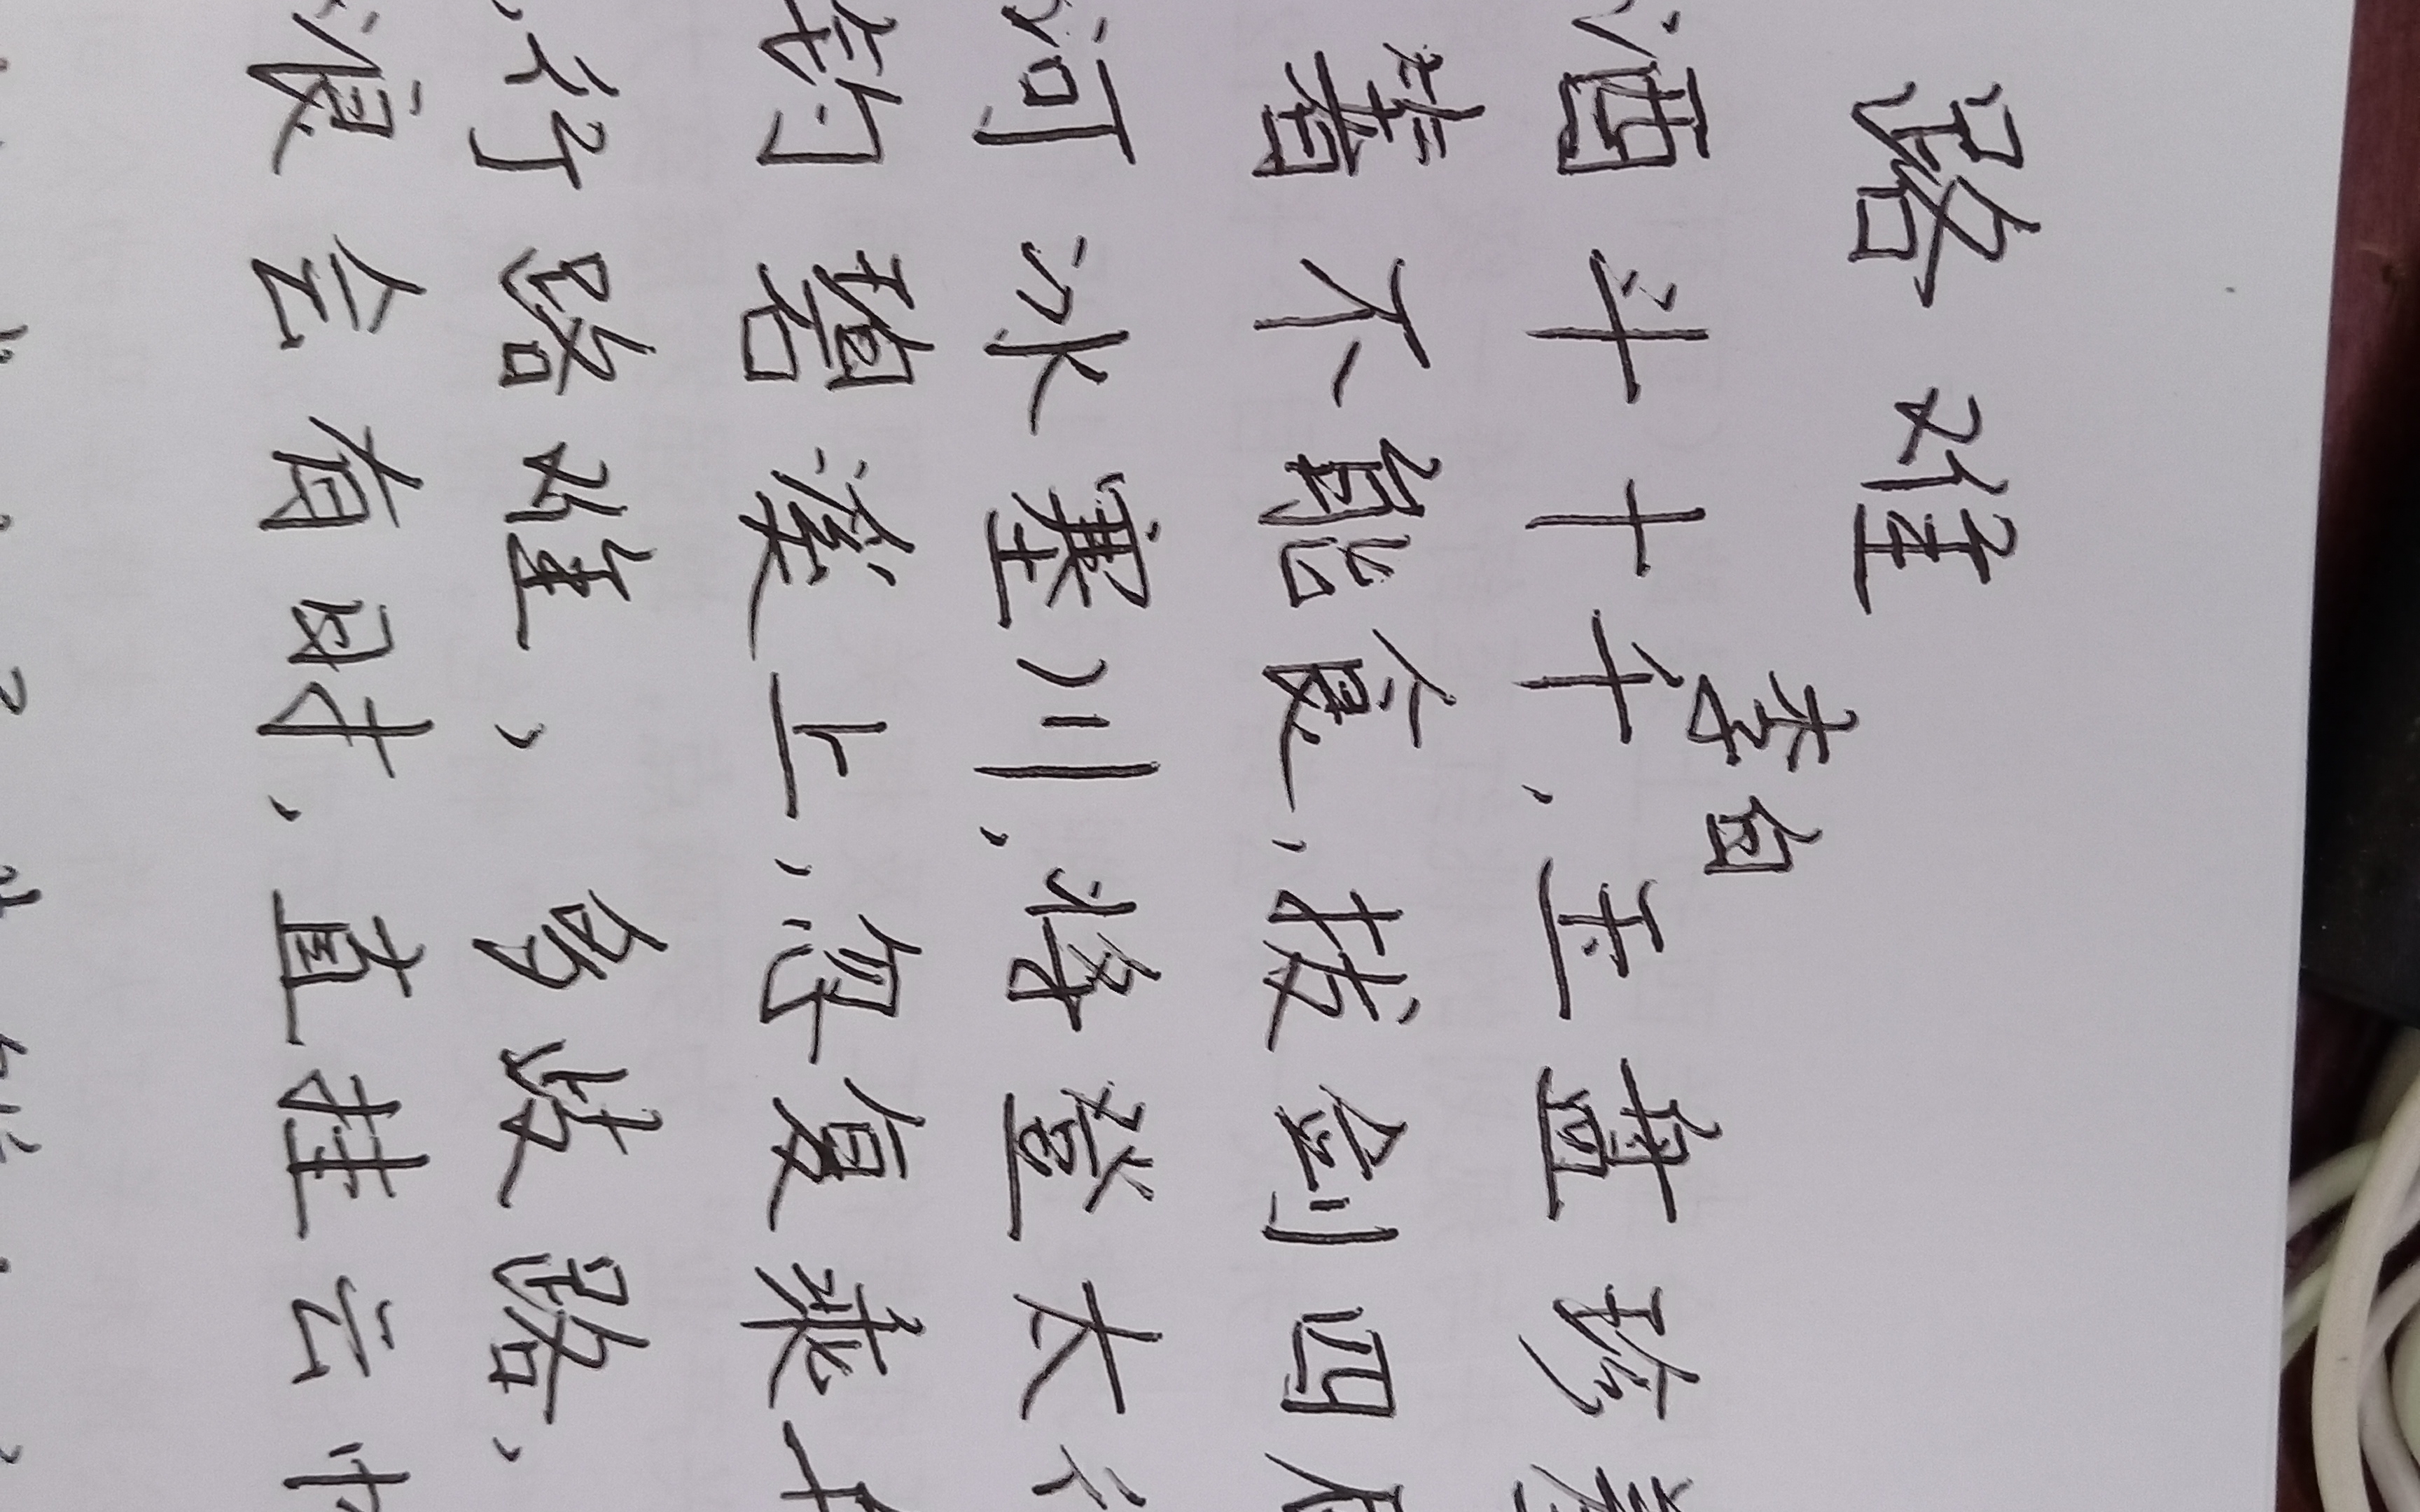 路难
李白
酒斗十千,玉盘珍羞
箸不能食,拔剑四
河冰塞川,将登太行
钓碧溪上,忽复乘舟
行路难,多歧路,
浪会有时,直挂云帆